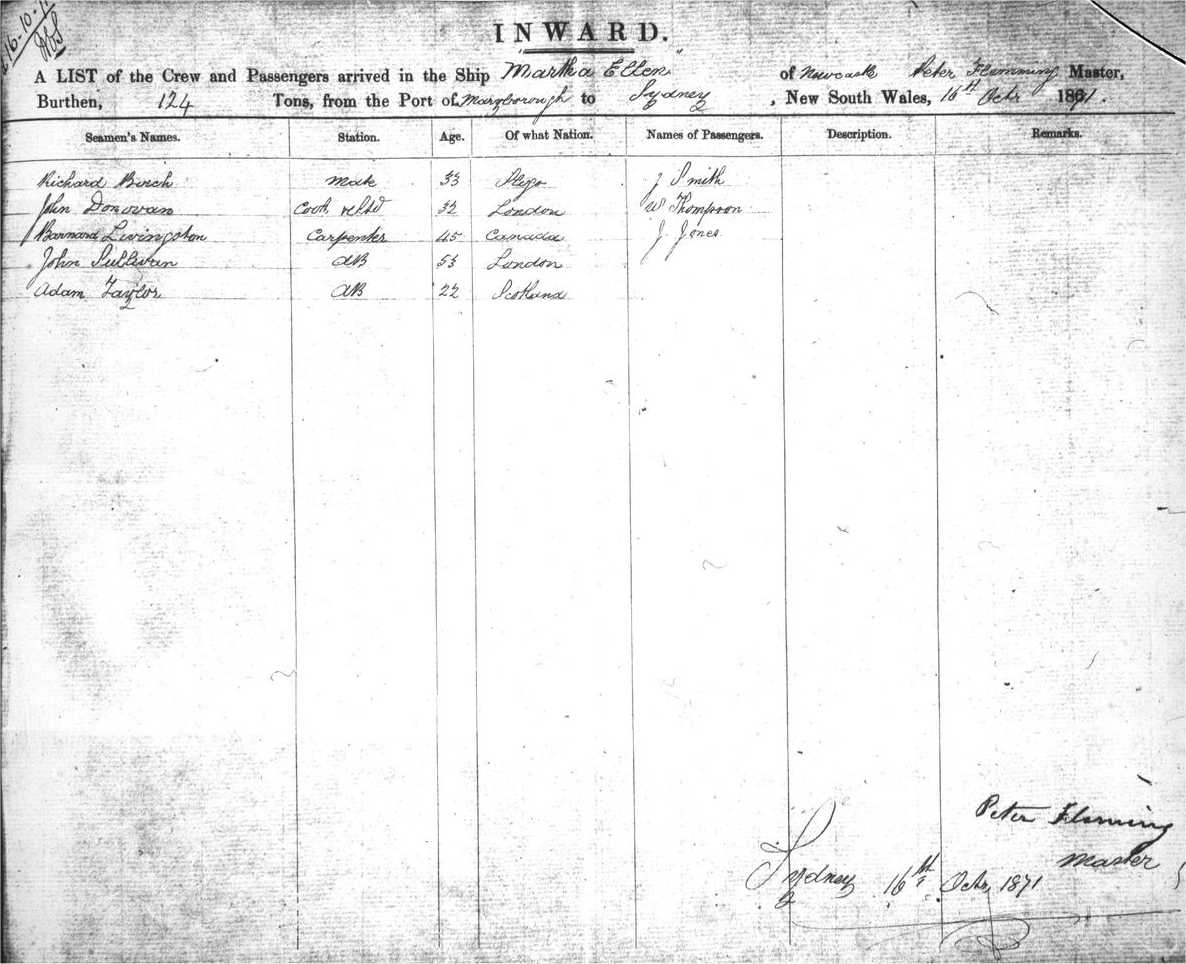 16-10-
INWARD.
A LIST of the Crew and Passengers arrived in the Ship "Martha Ellen" of Newcastle Peter Flemming Master,
Burthen, 124 Tons, from the Port of Maryborough to Sydney, New South Wales, 16th Octr 1871.
Seamen's Names. Station. Age. Of what Nation. Names of Passengers. Description. Remarks.
Richard Burch Mate 33 Sligo J Smith
John Donovan Cook & Std 32 London W Thompson
Barnard Livingston Carpenter 45 Canada J. Jones
John Sullivan AB 53 London
Adam Taylor AB 22 Scotland
Peter Fleming
Master
Sydney 16th Octr 1871